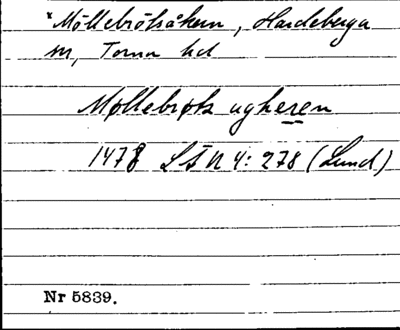 *Möllebrötsåkern, Hardeberga
sn, Torna hd
Møllebrøts agheren
1478 LÄU 4: 278 (Lund)
Nr 5839.